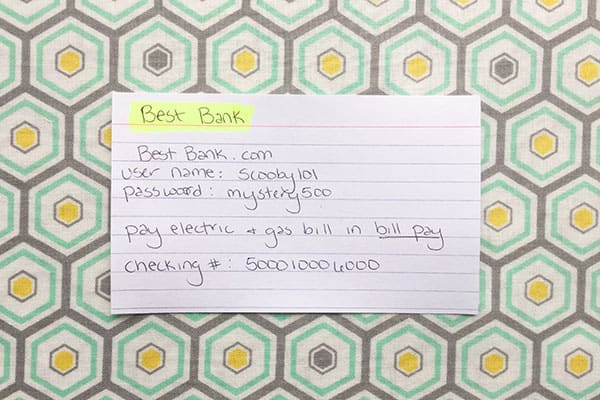 Best Bank
Best Bank.com
user name: Scooby101
password: mystery500
pay electric & gas bill in bill pay
checking #: 500010004000